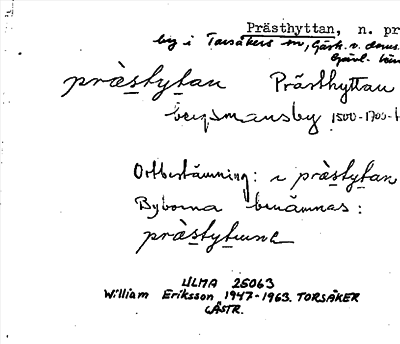 Prästhyttan, n. pr
by i Torsåkers sn, Gästr. v. domsaga
Gävl. län
prästytan Prästhyttan
bergsmansby 1500-1700-t
Ortbestämning: i prästytan
Byborna benämnas:
prästytuna
ULMA 25063
William Eriksson 1947-1963. TORSÅKER
GÄSTR.